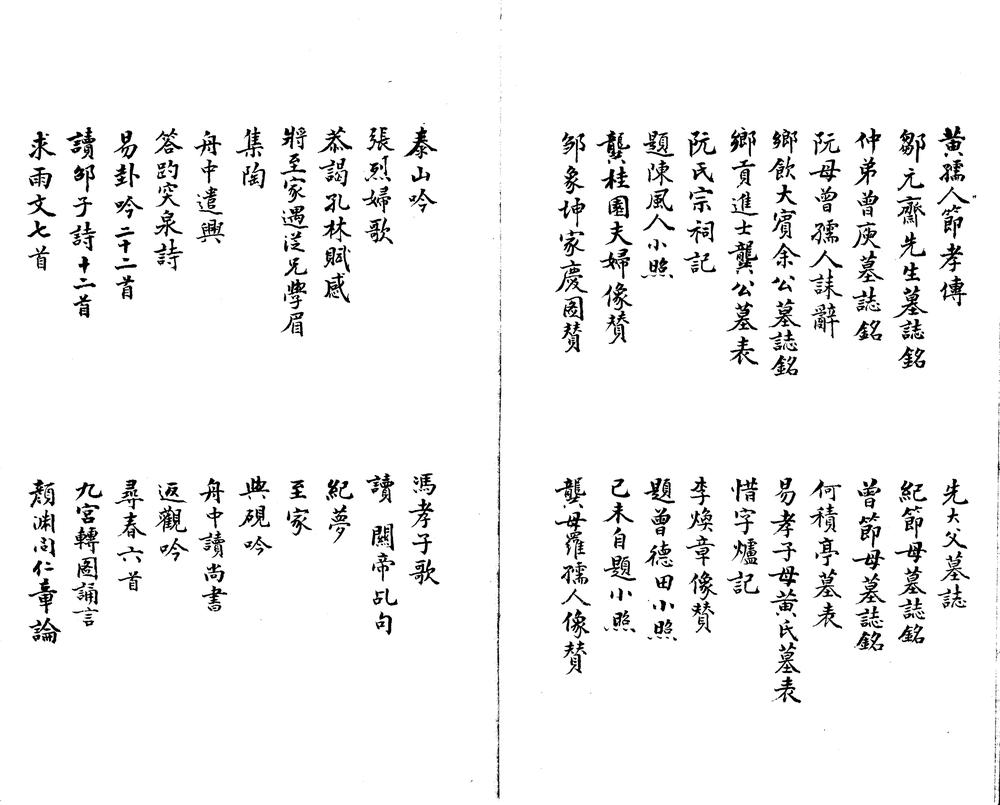 黃孺人節孝傳
先大父墓誌
鄒元齋先生墓誌銘
紀節母墓誌銘
仲弟曾庾墓誌銘
曾節母墓誌銘
阮母曾孺人誄辭
何積亭墓表
鄉飲大賓余公墓誌銘
易孝子母黃氏墓表
鄉貢進士龔公墓表
惜字爐記
阮氏宗祠記
李煥章像贊
題陳風人小照
題曾德田小照
龔桂園夫婦像贊
己未自題小照
鄒象坤家慶圖贊
龔母羅孺人像贊
泰山吟
馮孝子歌
張烈婦歌
讀 關帝乩句
恭謁孔林賦感
紀夢
將至家遇從兄學眉
至家
集陶
典硯吟
舟中遣興
舟中讀尚書
答趵突泉詩
返觀吟
易卦吟二十二首
尋春六首
讀邵子詩十二首
九宮轉圖誦言
求雨文七首
顏淵問仁章論